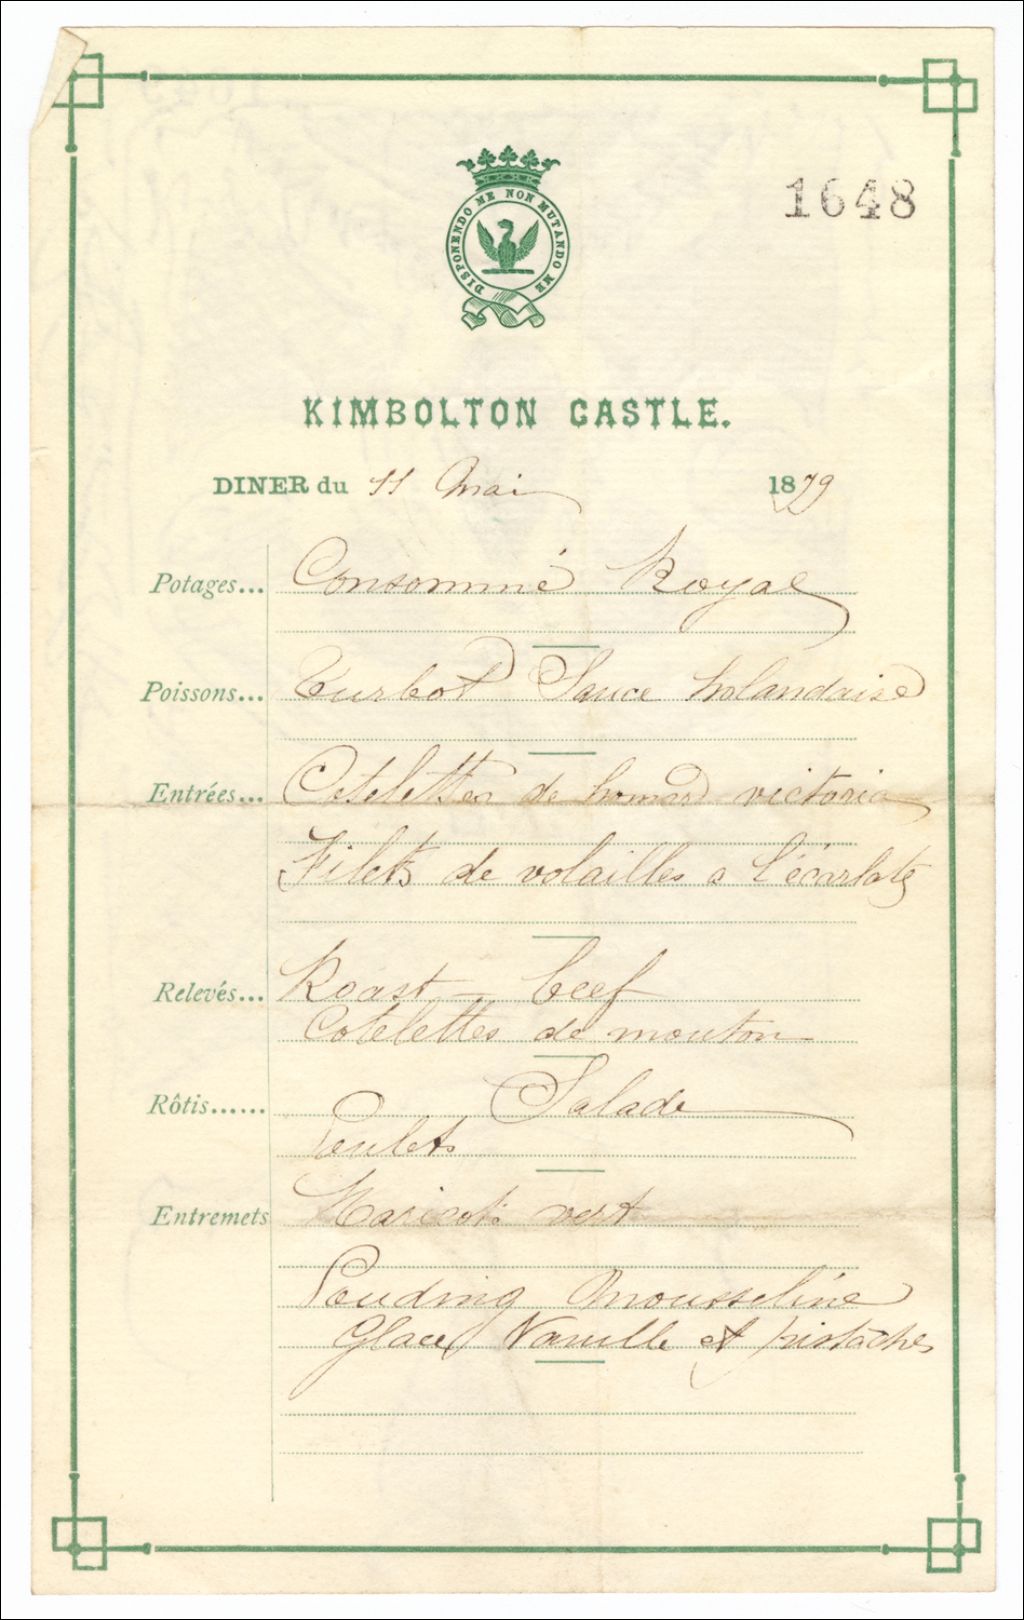 1648
DISPONENDO ME NON MUTANDO ME
KIMBOLTON CASTLE.
DINER du 11 Mai 1879
Potages... Consommé Royal
Poissons... Turbot Sauce holandaise
Entrées... Cotelettes de homard victoria
Filets de volailles a l'écarlate
Relevés... Roast-beef
Cotelettes de mouton
Rôtis...... Salade
Poulets
Entremets Haricots vert
Pouding Mousseline
Glaces Vanille et pistaches